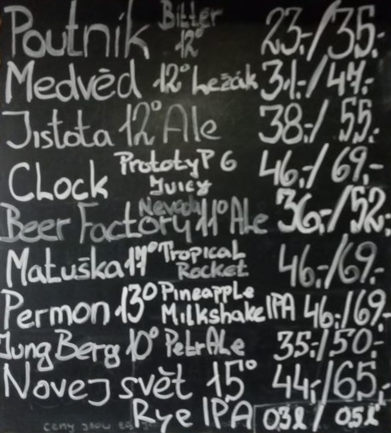 Poutník Bitter 12° 23,-/35,-
Medvěd 12° Ležák 31,-/47,-
Jistota 12° Ale 38,-/55,-
Clock Prototyp 6 Juicy 46,-/69,-
Beer Factory Nevada 11° Ale 36,-/52,-
Matuška 14° Tropical Rocket 46,-/69,-
Permon 13° Pineapple Milkshake IPA 46,-/69,-
Jung Berg 10° Petr Ale 35,-/50,-
Novej svět 15° 44,-/65,-
Rye IPA 0,3l / 0,5l
ceny jsou